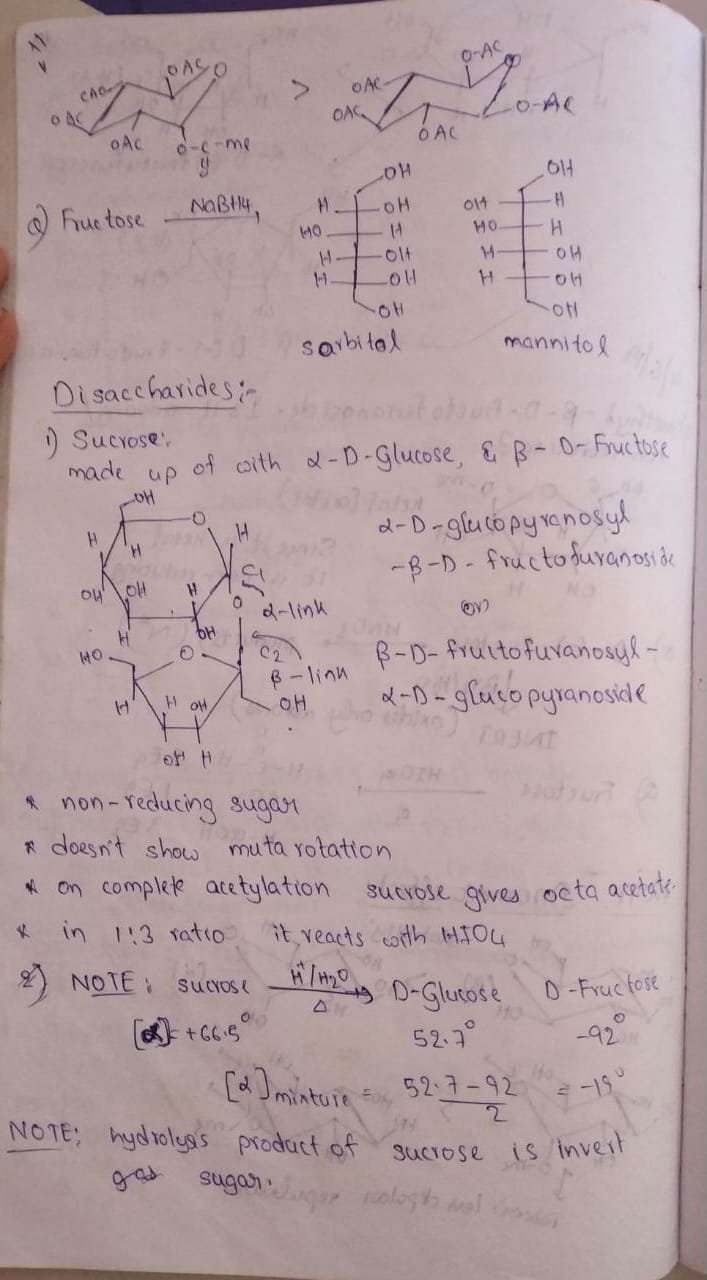 OAC O > O-AC O
CAO OAC
OAC OAC O-AC
OAC O-C-me OAC
O
Q) Fructose NaBH4,
OH OH
H OH OH H
HO H HO H
H OH H OH
H OH H OH
OH OH
sarbitol mannitol
Disaccharides:-
1) Sucrose:
made up of with α-D-Glucose, & β-D-Fructose
OH
O
H H H
C1
OH OH H O α-link
H OH
HO O C2
β-link
H H OH OH
OH H
α-D-glucopyranosyl
-β-D-fructofuranoside
(or)
β-D-fructofuranosyl-
α-D-glucopyranoside
* non-reducing sugar
* doesn't show muta rotation
* on complete acetylation sucrose gives octa acetate.
* in 1:3 ratio it reacts with HIO4
2) NOTE: sucrose H+/H2O Δ D-Glucose D-Fructose
[α]= +66.5° 52.7° -92°
[α]mixture = 52.7-92 / 2 = -19°
NOTE: hydrolysis product of sucrose is invert
sugar.